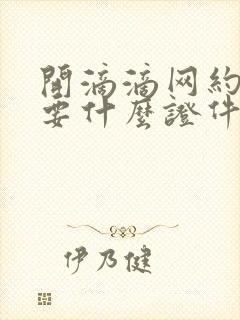 開滴滴网約
要什麼證件
伊乃健